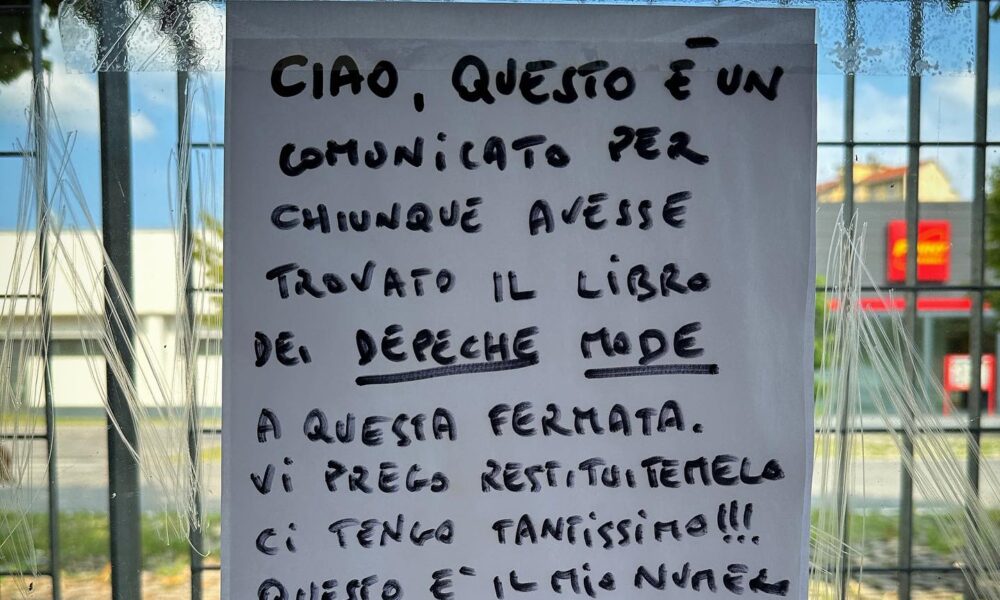 CIAO, QUESTO È UN
COMUNICATO PER
CHIUNQUE AVESSE
TROVATO IL LIBRO
DEI DEPECHE MODE
A QUESTA FERMATA.
VI PREGO RESTITUITEMELO
CI TENGO TANTISSIMO!!!
QUESTO E' IL MIO NUMERO